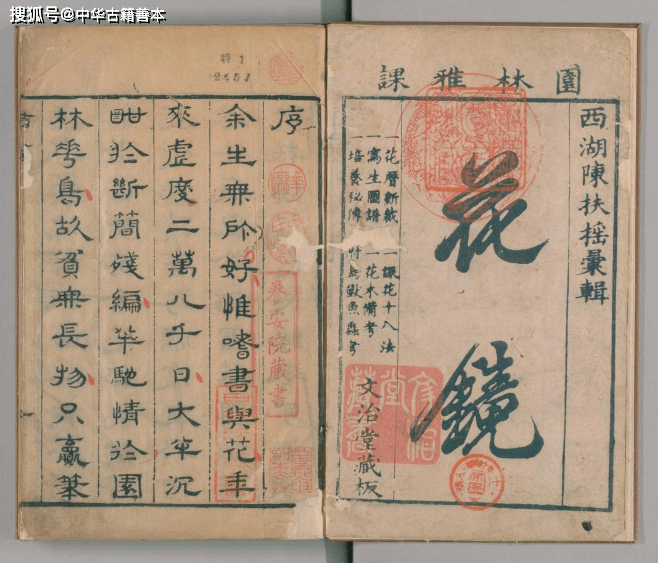 搜狐号@中华古籍善本
園林雅課
西湖陳扶搖彙輯
花鏡
花曆新裁 一課花十八法
一寫生圖譜 一花木備考
一培養秘傳 一附鳥獸魚蟲考
文治堂藏板
特1
2451
序
余生無所好惟嗜書與花年
來虛度二萬八千日大半沉
酣於斷簡殘編半馳情於園
林花鳥故貧無長物只贏筆
養安院藏書